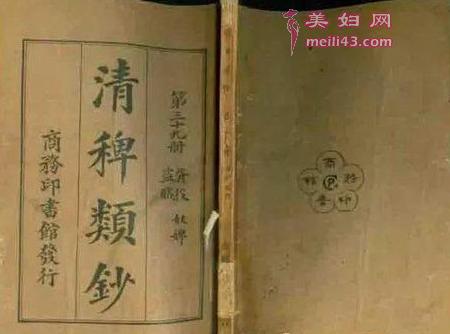 美妇网
meili43.com
第三十九册 胥役 奴婢
盜賊
清稗類鈔
商務印書館發行
商務印書館